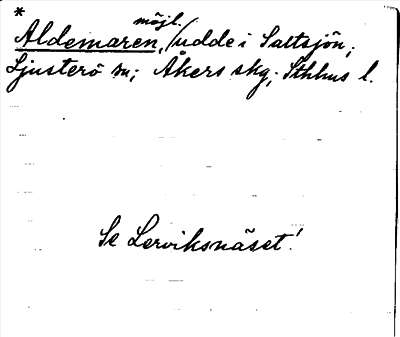 * möjl.
Aldemaren, /udde i Saltsjön;
Ljusterö sn; Åkers skg; Sthlms l.
Se Lerviksnäset!